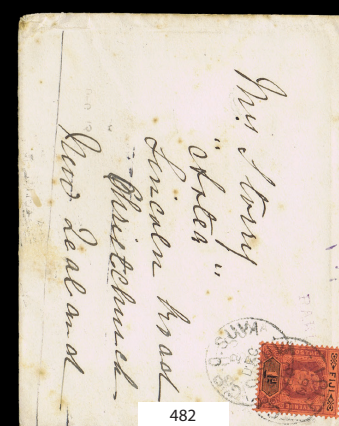 Mrs Story
"
Lincoln Road
Christchurch
New Zealand
G.P.O. SUVA
FIJI
482